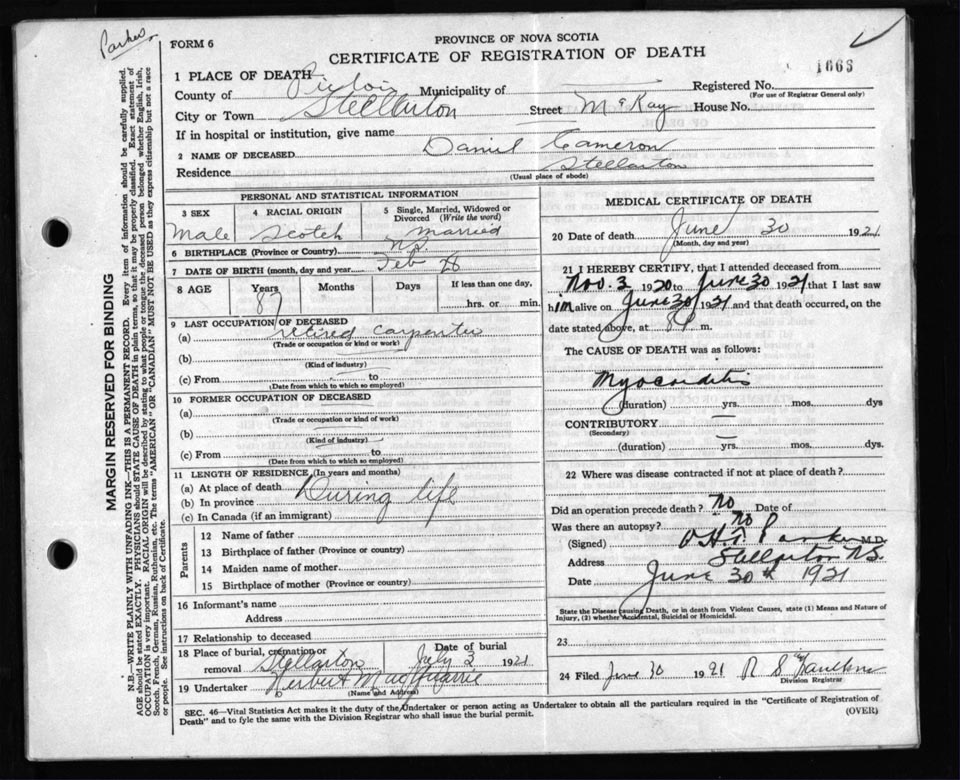 Parker
FORM 6
PROVINCE OF NOVA SCOTIA
CERTIFICATE OF REGISTRATION OF DEATH
1666
1 PLACE OF DEATH
County of Pictou Municipality of Registered No.
(For use of Registrar General only)
City or Town Stellarton Street McKay House No.
If in hospital or institution, give name
2 NAME OF DECEASED Daniel Cameron
Residence Stellarton
(Usual place of abode)
PERSONAL AND STATISTICAL INFORMATION
3 SEX 4 RACIAL ORIGIN 5 Single, Married, Widowed or Divorced (Write the word)
Male Scotch Married
6 BIRTHPLACE (Province or Country) N.S.
7 DATE OF BIRTH (month, day and year) Feb
8 AGE Years Months Days If less than one day,
87 hrs. or min.
9 LAST OCCUPATION OF DECEASED
(a) retired carpenter
(Trade or occupation or kind or work)
(b)
(Kind of industry)
(c) From to
(Date from which to which so employed)
10 FORMER OCCUPATION OF DECEASED
(a)
(Trade or occupation or kind of work)
(b)
(Kind of industry)
(c) From to
(Date from which to which so employed)
11 LENGTH OF RESIDENCE (In years and months)
(a) At place of death
(b) In province During life
(c) In Canada (if an immigrant)
Parents
12 Name of father
13 Birthplace of father (Province or country)
14 Maiden name of mother
15 Birthplace of mother (Province or country)
16 Informant's name
Address
17 Relationship to deceased
18 Place of burial, cremation or removal Stellarton Date of burial July 2 1921
19 Undertaker Herbert MacQuarrie
(Name and Address)
MEDICAL CERTIFICATE OF DEATH
20 Date of death June 30 1921
(Month, day and year)
21 I HEREBY CERTIFY, that I attended deceased from
Nov. 3 1920 to June 30 1921 that I last saw
him alive on June 30 1921 and that death occurred, on the
date stated above, at m.
The CAUSE OF DEATH was as follows:
Myocarditis
(duration) yrs. mos. dys
CONTRIBUTORY
(Secondary)
(duration) yrs. mos. dys.
22 Where was disease contracted if not at place of death?
Did an operation precede death? No Date of
Was there an autopsy? No
(Signed) Parker M.D.
Address Stellarton N.S.
Date June 30th 1921
State the Disease causing Death, or in death from Violent Causes, state (1) Means and Nature of
Injury, (2) whether Accidental, Suicidal or Homicidal.
23
24 Filed June 30 1921 R S Faulkner
Division Registrar
SEC. 46—Vital Statistics Act makes it the duty of the Undertaker or person acting as Undertaker to obtain all the particulars required in the "Certificate of Registration of
Death" and to fyle the same with the Division Registrar who shall issue the burial permit. (OVER)
MARGIN RESERVED FOR BINDING
N.B.—WRITE PLAINLY WITH UNFADING INK—THIS IS A PERMANENT RECORD. Every item of information should be carefully supplied.
AGE should be stated EXACTLY. PHYSICIANS should STATE CAUSE OF DEATH in plain terms, so that it may be properly classified. Exact statement of
OCCUPATION is very important. RACIAL ORIGIN will be described by stating to what people or tongue the deceased person belonged whether English, Irish,
Scotch, French, German, Russian, Ruthenian, etc. The terms "AMERICAN" OR "CANADIAN" MUST NOT BE USED as they express citizenship but not a race
or people. See instructions on back of Certificate.